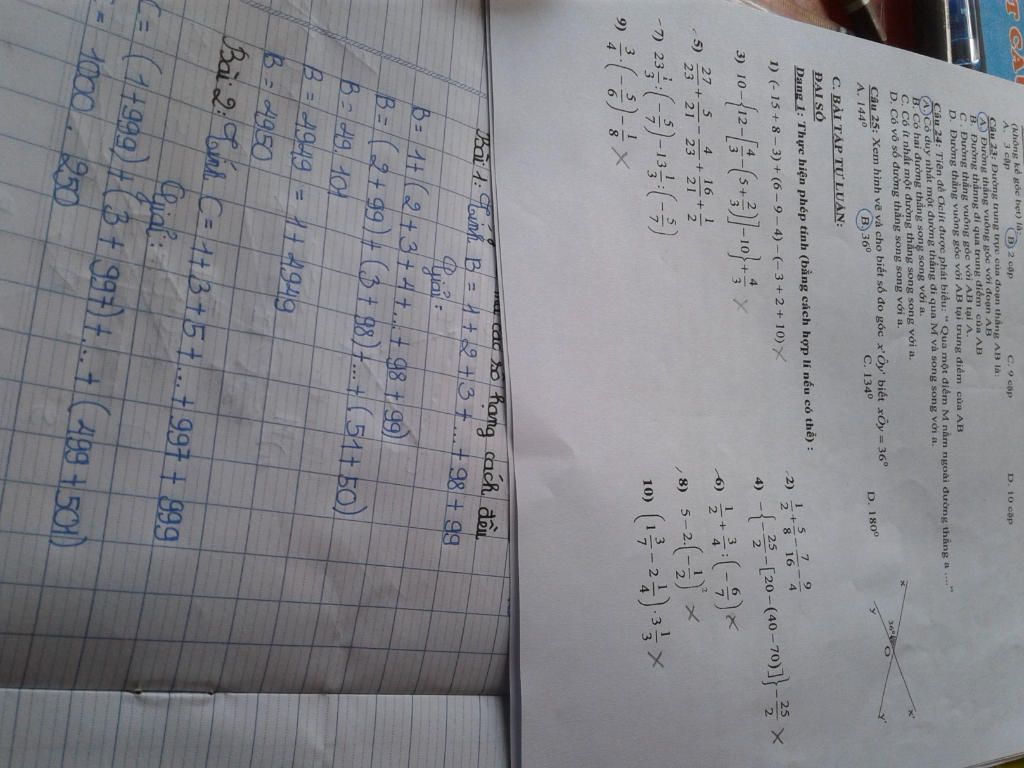 T CÂ
(không kể góc bẹt) là:
A. 3 cặp B. 2 cặp C. 9 cặp D. 10 cặp
Câu 23: Đường trung trực của đoạn thẳng AB là:
A. Đường thẳng vuông góc với đoạn AB
B. Đường thẳng đi qua trung điểm của AB
C. Đường thẳng vuông góc với AB tại A.
D. Đường thẳng vuông góc với AB tại trung điểm của AB
Câu 24: Tiên đề Ơclit được phát biểu: " Qua một điểm M nằm ngoài đường thẳng a .... "
A. Có duy nhất một đường thẳng đi qua M và song song với a.
B. Có hai đường thẳng song song với a.
C. Có ít nhất một đường thẳng song song với a.
D. Có vô số đường thẳng song song với a.
Câu 25: Xem hình vẽ và cho biết số đo góc x'Ôy' biết xÔy = 36⁰
A. 144⁰ B. 36⁰ C. 134⁰ D. 180⁰
x x'
36⁰ O
y y'
C. BÀI TẬP TỰ LUẬN:
ĐẠI SỐ
Dạng 1: Thực hiện phép tính (bằng cách hợp lí nếu có thể) :
1) (-15 + 8 - 3) + (6 - 9 - 4) - (-3 + 2 + 10) X
2) 1/2 + 5/8 - 7/16 - 9/4
3) 10 - {12 - [4/3 - (5 + 2/3)] - 10}⁴ + 3 X
4) -{-25/2 - [20 - (40 - 70)]} - 25/2 X
5) 27/23 + 5/21 - 4/23 + 16/21 + 1/2
6) 1/2 + 3/4 : (-6/7) X
7) 23 1/3 : (-5/7) - 13 1/3 : (-5/7)
8) 5 - 2.(-1/2)² X
9) 3/4 . (-5/6) - 1/8 X
10) (1 3/7 - 2 1/4) . 3 1/3 X
các số hạng cách đều
Bài 1: Tính B = 1 + 2 + 3 + ... + 98 + 99
Giải:
B = 1 + (2 + 3 + 4 + ... + 98 + 99)
B = (2 + 99) + (3 + 98) + ... + (51 + 50)
B = 49 . 101
B = 4949 = 1 + 4949
B = 4950
Bài 2: Tính C = 1 + 3 + 5 + ... + 997 + 999
Giải:
C = (1 + 999) + (3 + 997) + ... + (499 + 501)
= 1000 . 250